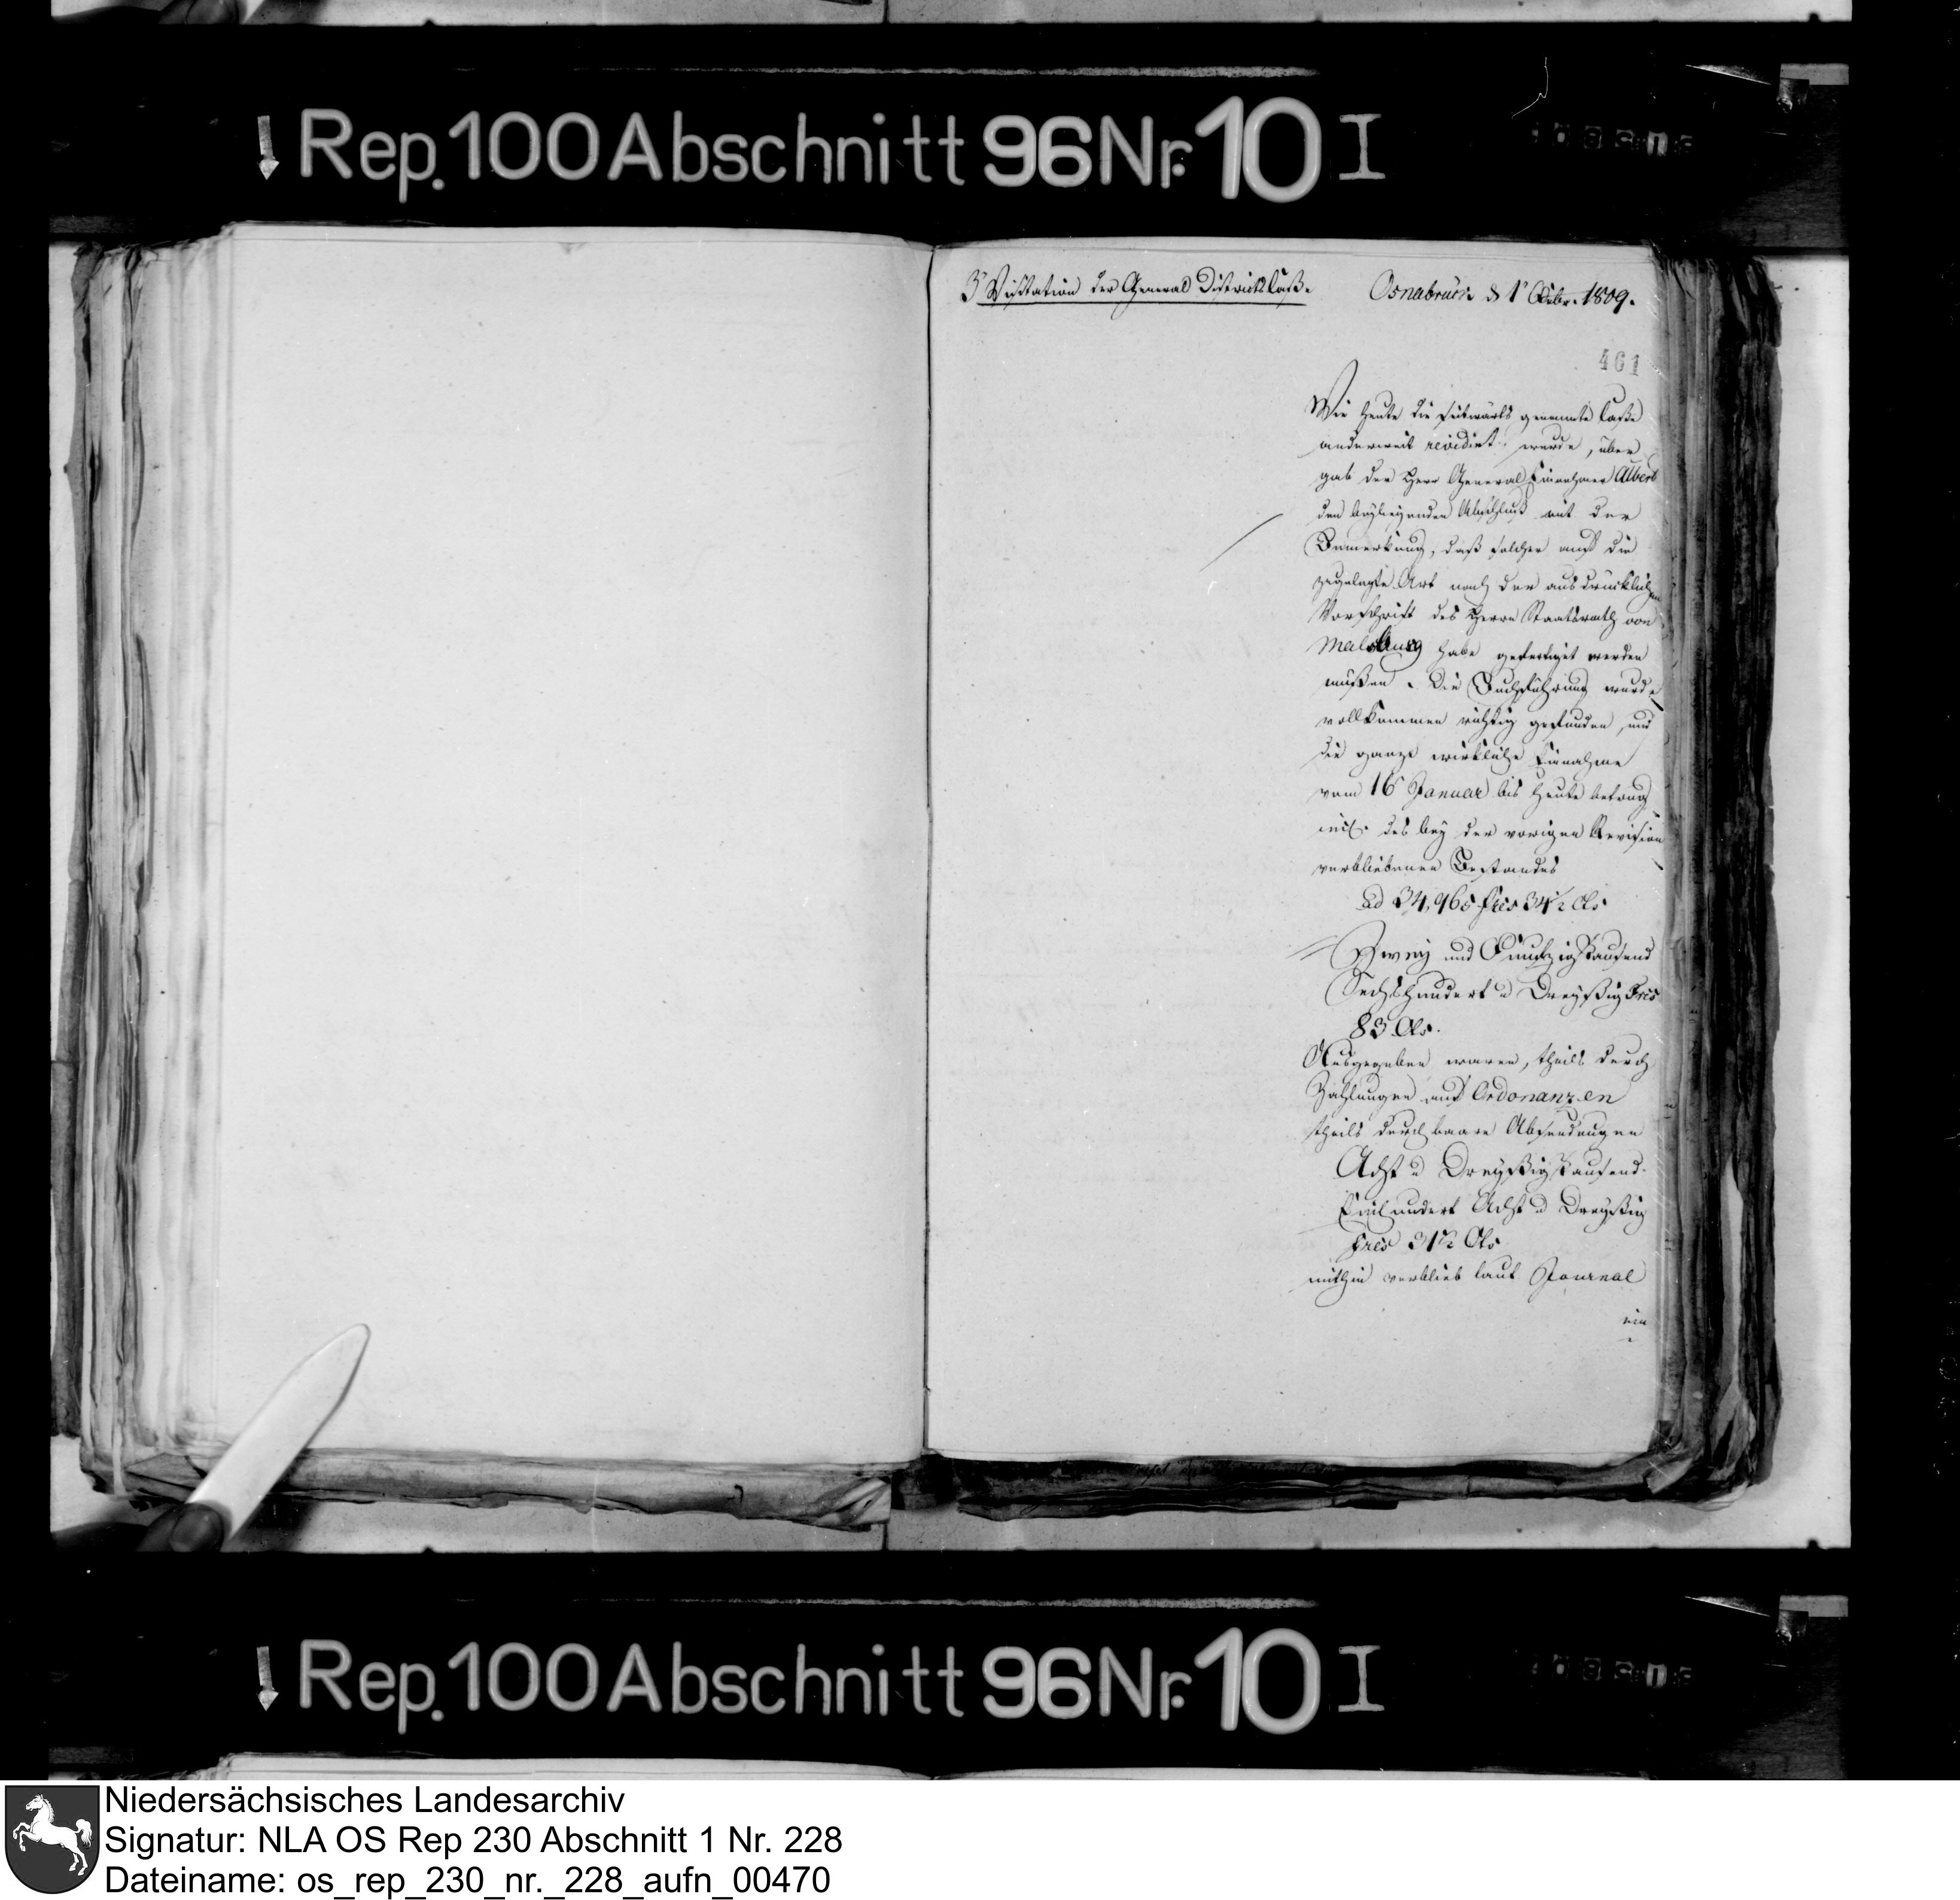 Rep. 100 Abschnitt 96 Nr. 10 I
3t Visitation der General Districts Casse.
Osnabrück d 1t Febr. 1809.
461
Wie heute die seitwärts genannte Casse
anderweit revidirt wurde, über
gab der Herr General Einnehmer Albert
den beyliegenden Abschluß mit der
Bemerkung, daß solcher auf die
Art nach der ausdrücklichen
Vorschrift des Herrn Staatsrath von
Malsburg habe gefertiget werden
müßen. Die Buchführung wurde
vollkommen richtig gefunden, und
die ganze wirkliche Einnahme
vom 16t Januar bis heute betrug
incl. des bey der vorigen Revision
verbliebenen Bestandes
ad 34,965 frcs 34½ Cts
Zwey und Funfzigtausend
Sechshundert u Dreyßig Frcs
83 Cts.
Ausgegeben waren, theils durch
Zahlungen auf Ordonanzen
theils durch baare Absendungen
Acht u Dreyßigtausend
Einhundert Acht u Dreyßig
Frcs 31½ Cts.
mithin verblieb laut Journal
ein
Rep. 100 Abschnitt 96 Nr. 10 I
Niedersächsisches Landesarchiv
Signatur: NLA OS Rep 230 Abschnitt 1 Nr. 228
Dateiname: os_rep_230_nr._228_aufn_00470